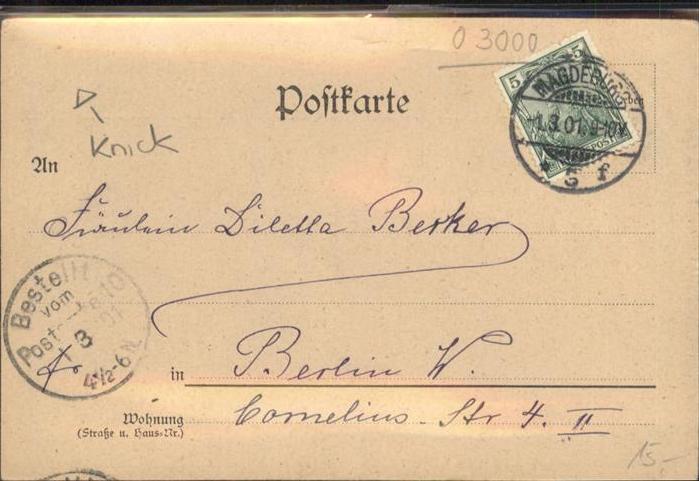 0 3000
5 5
MAGDEBURG
1.3.01. 9-10V
* 5 f
POST
Knick
Postkarte
An
Fräulein Diletta Berker
Bestellt
vom
Post
3
4½-6N
in Berlin W.
Wohnung
(Straße u. Haus-Nr.)
Cornelius-Str 4. II
15,-